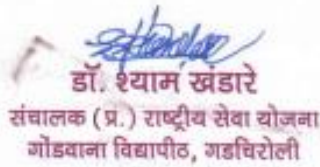 डॉ. श्याम खंडारे
संचालक (प्र.) राष्ट्रीय सेवा योजना
गोंडवाना विद्यापीठ, गडचिरोली